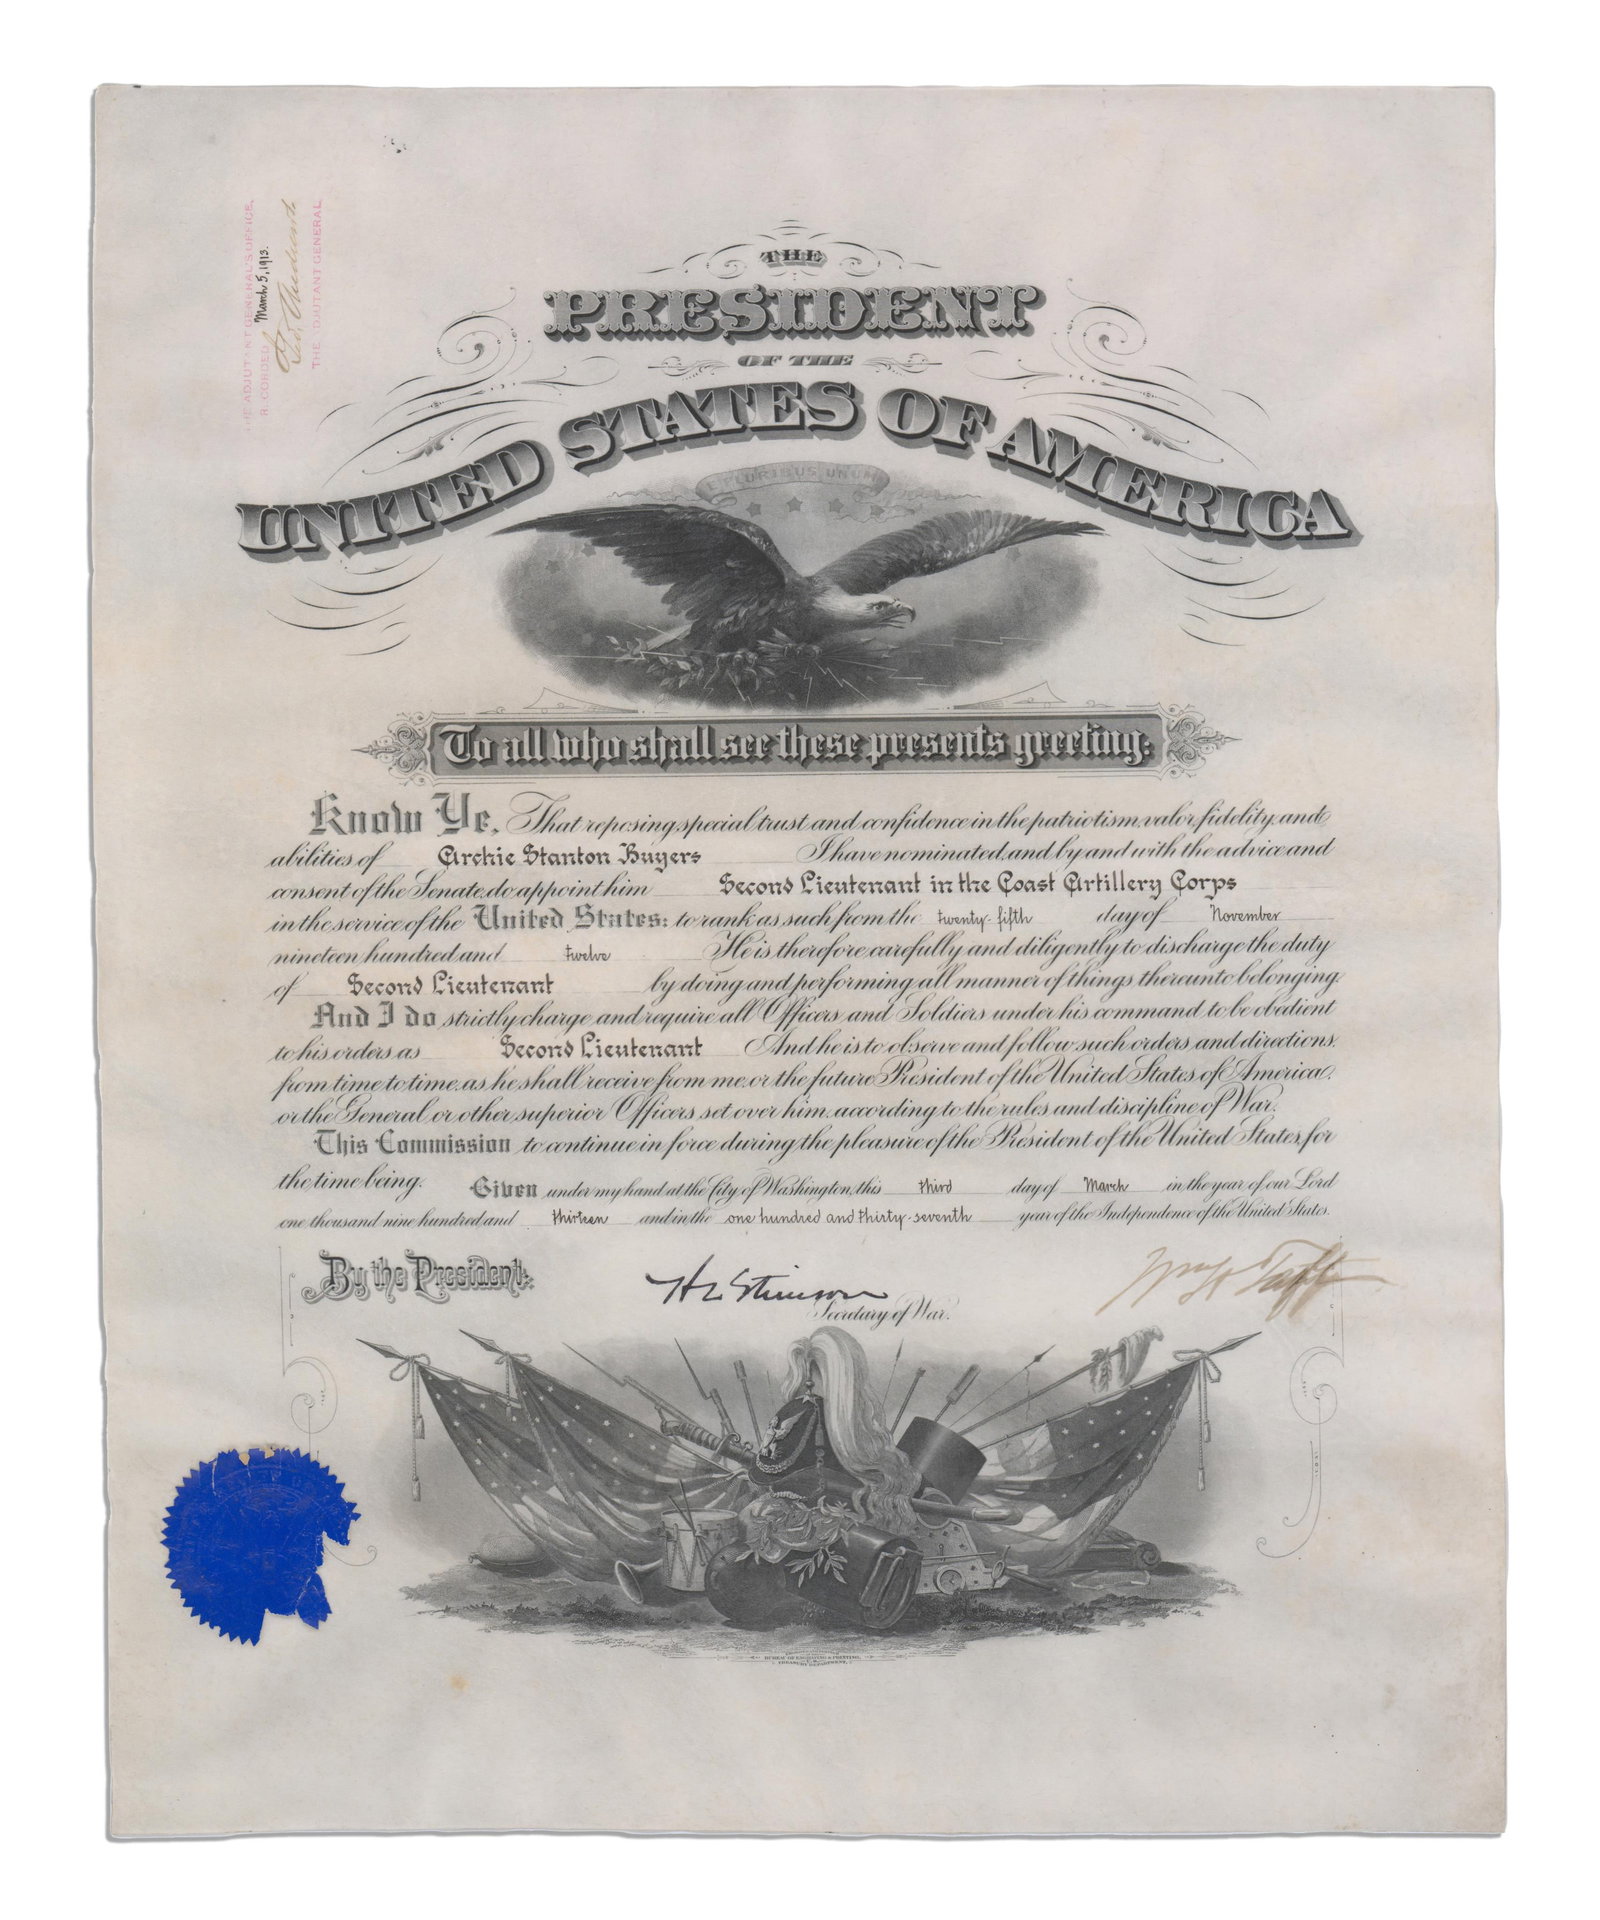 THE ADJUTANT GENERAL'S OFFICE,
RECORDED March 5, 1913.
THE ADJUTANT GENERAL.
THE
PRESIDENT
OF THE
UNITED STATES OF AMERICA
E PLURIBUS UNUM
To all who shall see these presents greeting:
Know Ye, That reposing special trust and confidence in the patriotism, valor, fidelity, and
abilities of Archie Stanton Buyers I have nominated, and by and with the advice and
consent of the Senate, do appoint him Second Lieutenant in the Coast Artillery Corps
in the service of the United States: to rank as such from the twenty-fifth day of November
nineteen hundred and twelve He is therefore carefully and diligently to discharge the duty
of Second Lieutenant by doing and performing all manner of things thereunto belonging.
And I do strictly charge and require all Officers and Soldiers under his command to be obedient
to his orders as Second Lieutenant And he is to observe and follow such orders, and directions,
from time to time, as he shall receive from me, or the future President of the United States of America,
or the General or other superior Officers set over him, according to the rules and discipline of War.
This Commission to continue in force during the pleasure of the President of the United States, for
the time being. Given under my hand at the City of Washington, this third day of March in the year of our Lord
one thousand nine hundred and thirteen and in the one hundred and thirty-seventh year of the Independence of the United States.
By the President:
H L Stimson
Wm H Taft
Secretary of War.
BUREAU OF ENGRAVING & PRINTING,
TREASURY DEPARTMENT.